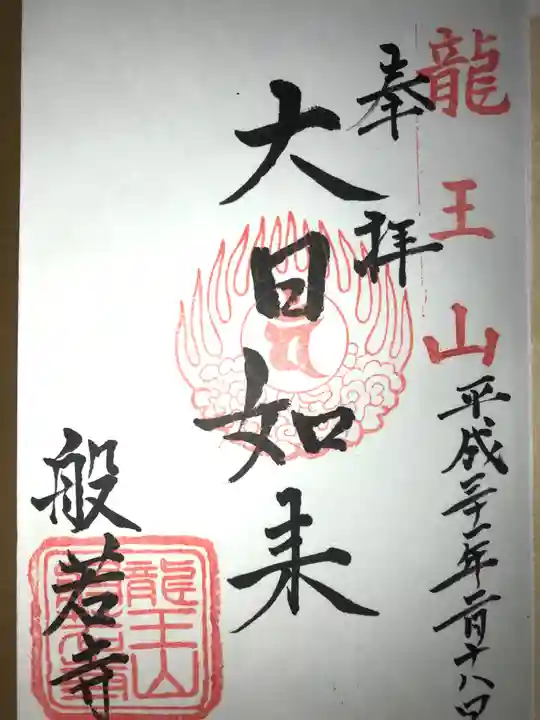 龍王山
奉拝
平成三十一年二月十八日
大日如来
般若寺
龍王山
般若寺